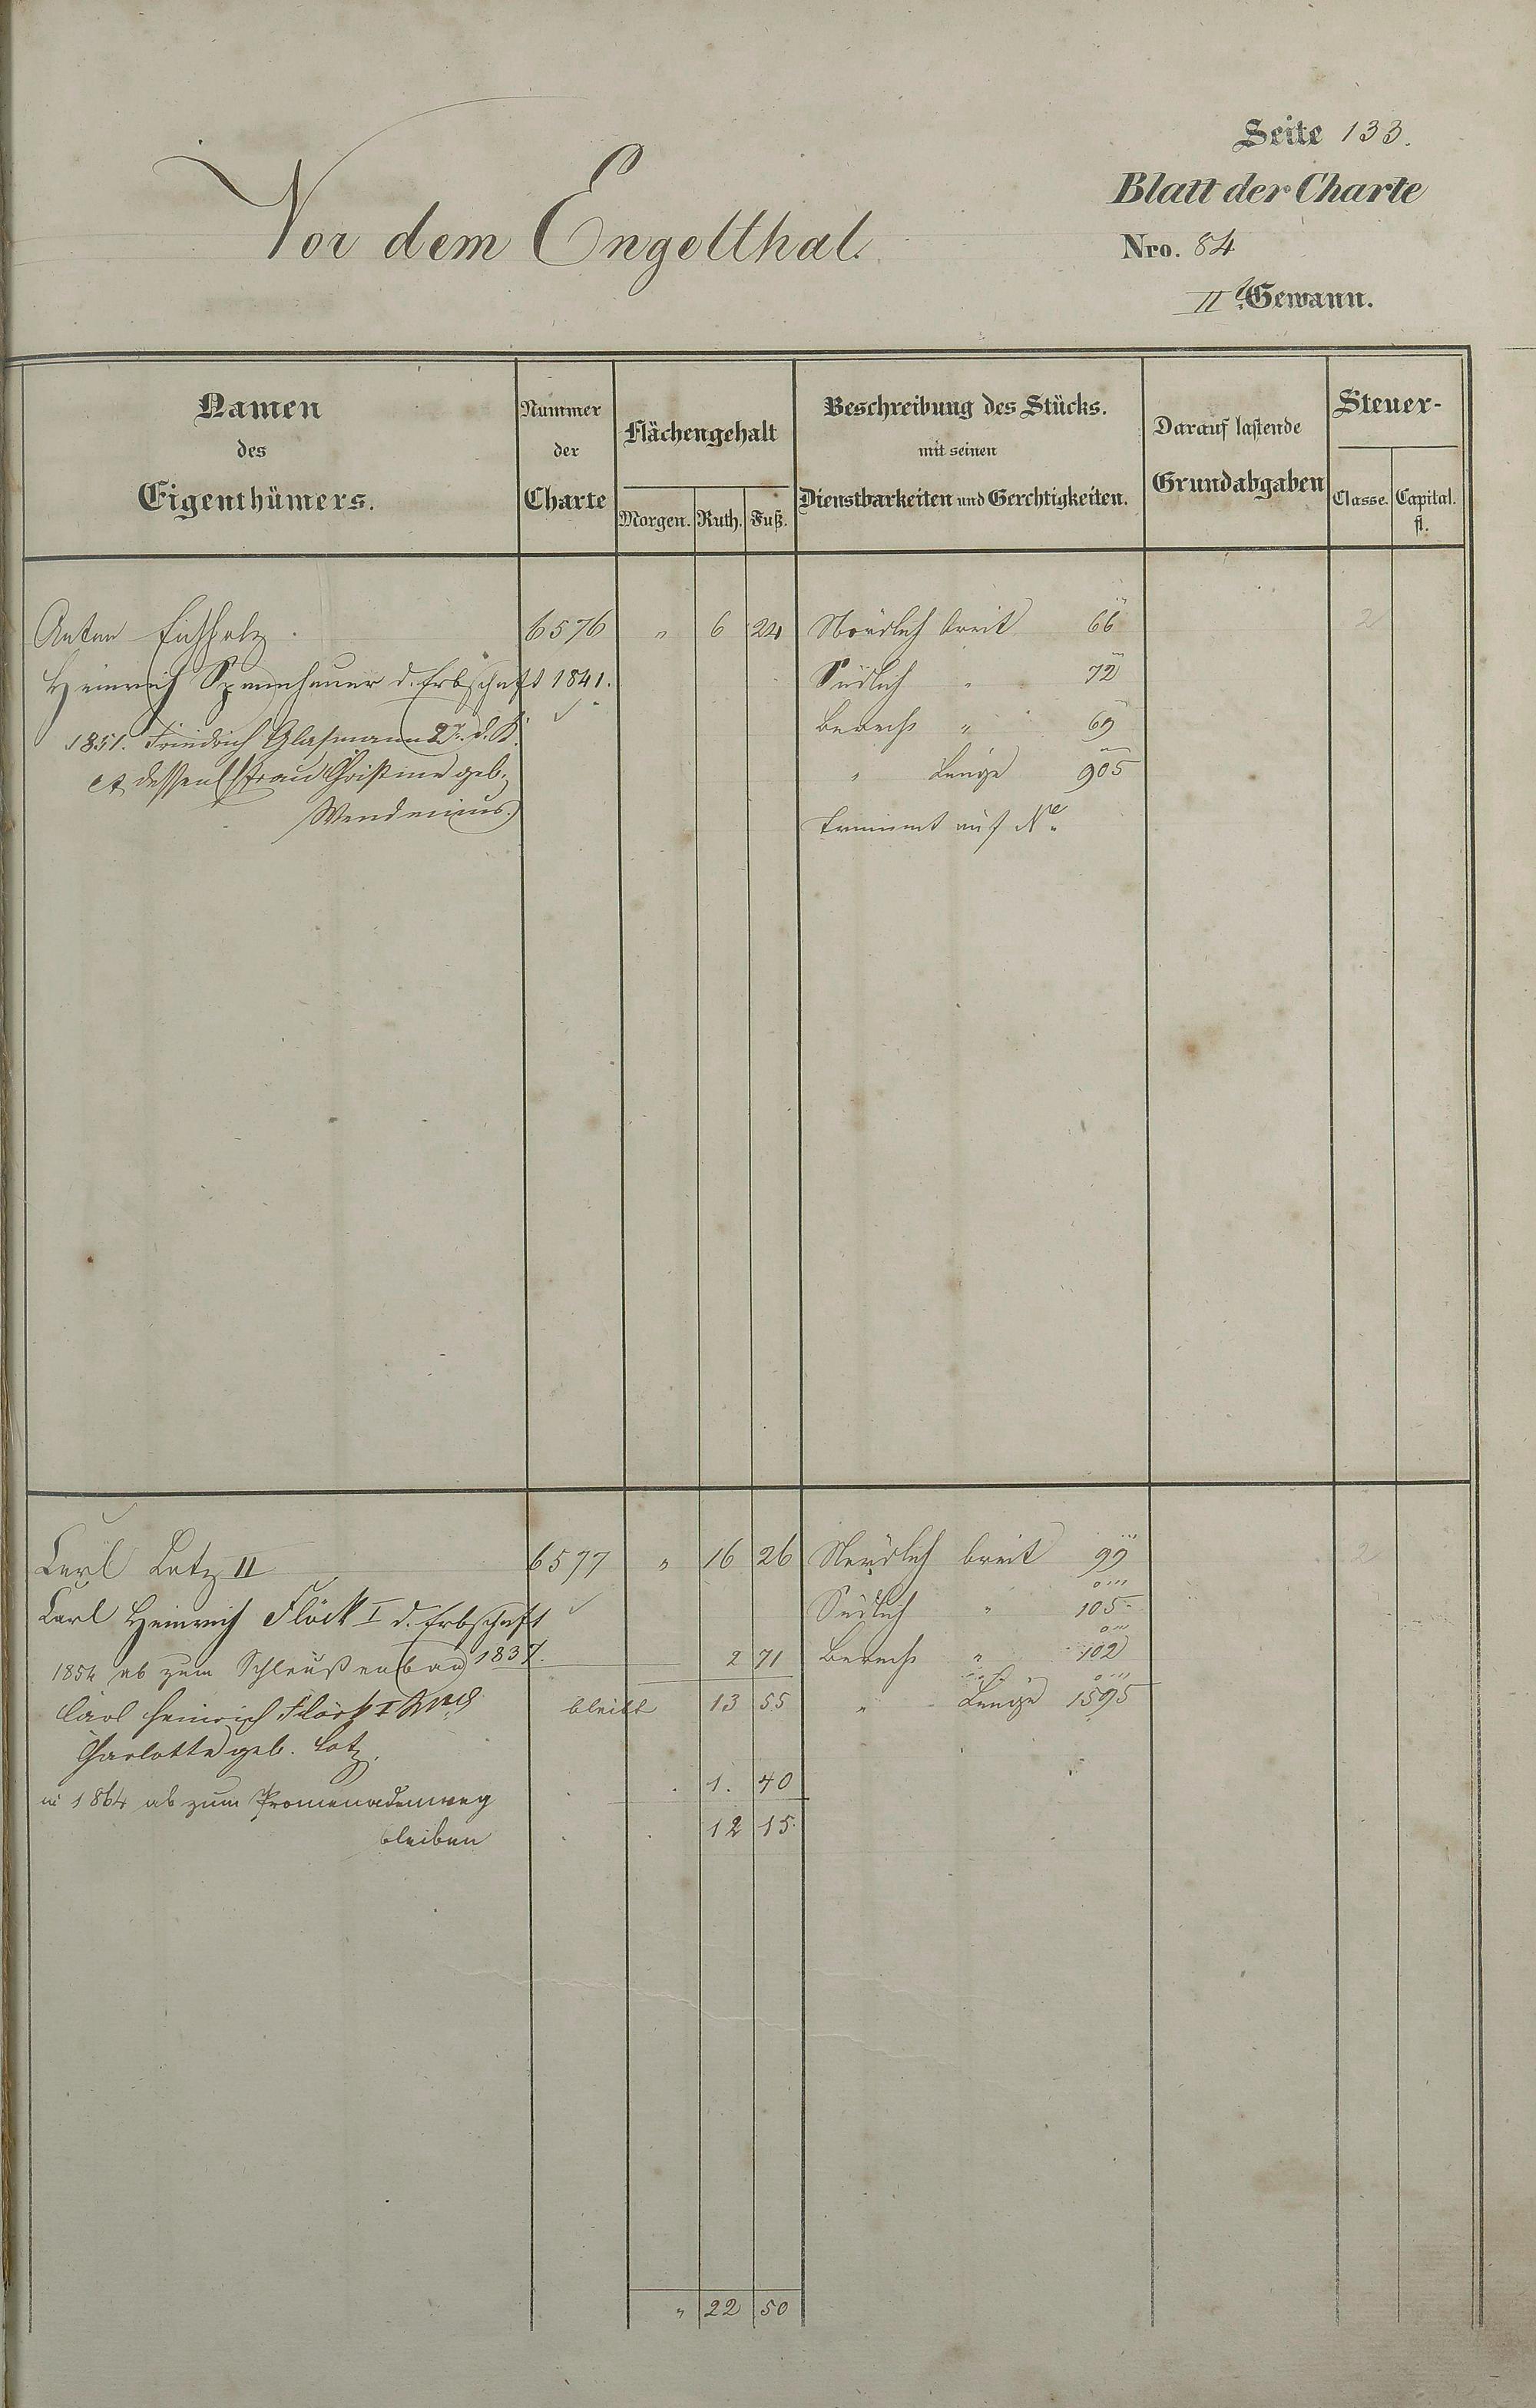 Seite 133.
Blatt der Charte
Vor dem Engelthal.
Nro. 84
II Gewann.
Namen des Eigenthümers.
Nummer der Charte
Flächengehalt
Morgen. Ruth. Fuß.
Beschreibung des Stücks. mit seinen Dienstbarkeiten und Gerechtigkeiten.
Darauf lastende Grundabgaben
Steuer-
Classe. Capital. fl.
Anton Eichholz. 6576 " 6 24 Nördlich breit 66 2
Heinrich Spamhauer d. Erbschaft 1841. Südlich " 72
1851. Friedrich Glasmann 2r. d. K. Berechn " 69
et dessen Ehefrau Christine geb. " Länge 905
Wendenius.) kommt auf No
Carl Lotz II 6577 " 16 26 Nördlich breit 99 2
Carl Heinrich Flöck I d. Erbschaft Südlich " 105
1837.
1854 ab zum Schleußenbau 2 71 Berechn " 102
Carl Heinrich Flöck I Wwe bleibt 13 55 " Länge 1595
Charlotte geb. Lotz.
in 1864 ab zum Promenadenweg 1. 40
bleiben 12 15
" 22 50